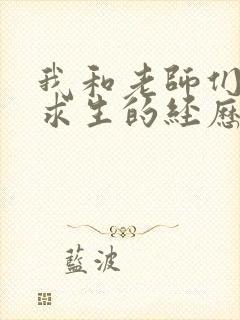 我和老師们
求生的经歷
藍波